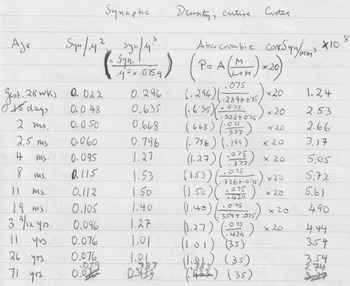 Synaptic Density, entire Cortex.
Age Syn/μ² Syn/μ³ Abercrombie corr Syn/mm³ × 10⁸
(Syn. / μ² × .0754) (P = A (M / L+M) × 20)
Gest. 28 wks 0.022 0.296 (.296) (.075 / .289+.075) × 20 1.24
days 0.048 0.635 (.635) (.075 / .302+.075) × 20 2.53
2 ms. 0.050 0.668 (.668) (.075 / .377) × 20 2.66
2.5 ms. 0.060 0.796 (.796) (.199) × 20 3.17
4 ms. 0.095 1.27 (1.27) (.075 / .377) × 20 5.05
8 ms. 0.115 1.53 (1.53) (.075 / .326+.075) × 20 5.72
11 ms. 0.112 1.50 (1.50) (.075 / ) × 20 5.61
19 ms. 0.105 1.40 (1.40) (.075 / .354+.075) × 20 4.90
3 yrs. 0.096 1.27 (1.27) (.075 / .429) × 20 4.44
11 yrs. 0.076 1.01 (1.01) (35) 3.54
26 yrs. 0.076 1.01 (1.01) (35) 3.54
71 yrs. .059 .787 (35) 2.74